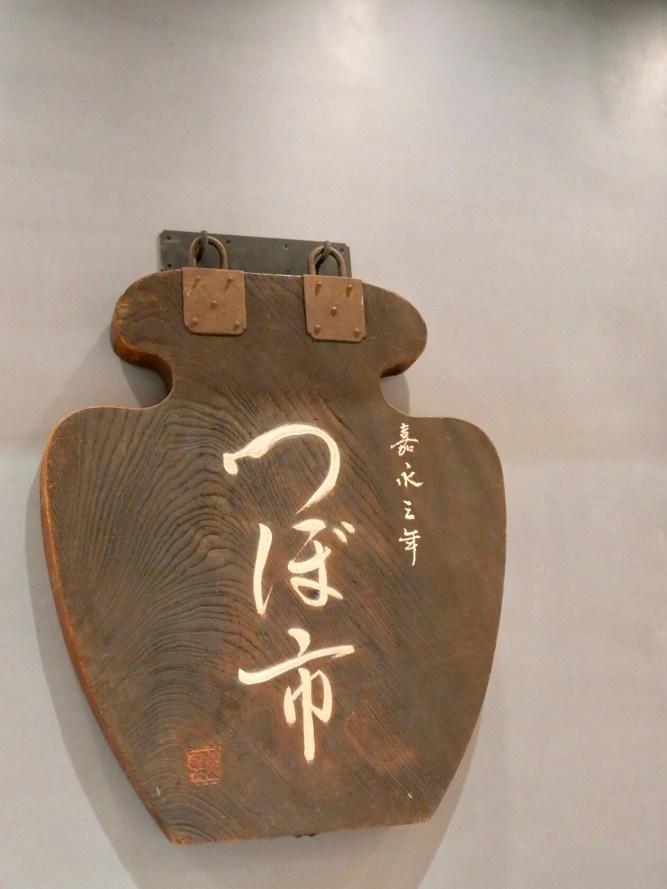 嘉永三年
つぼ市